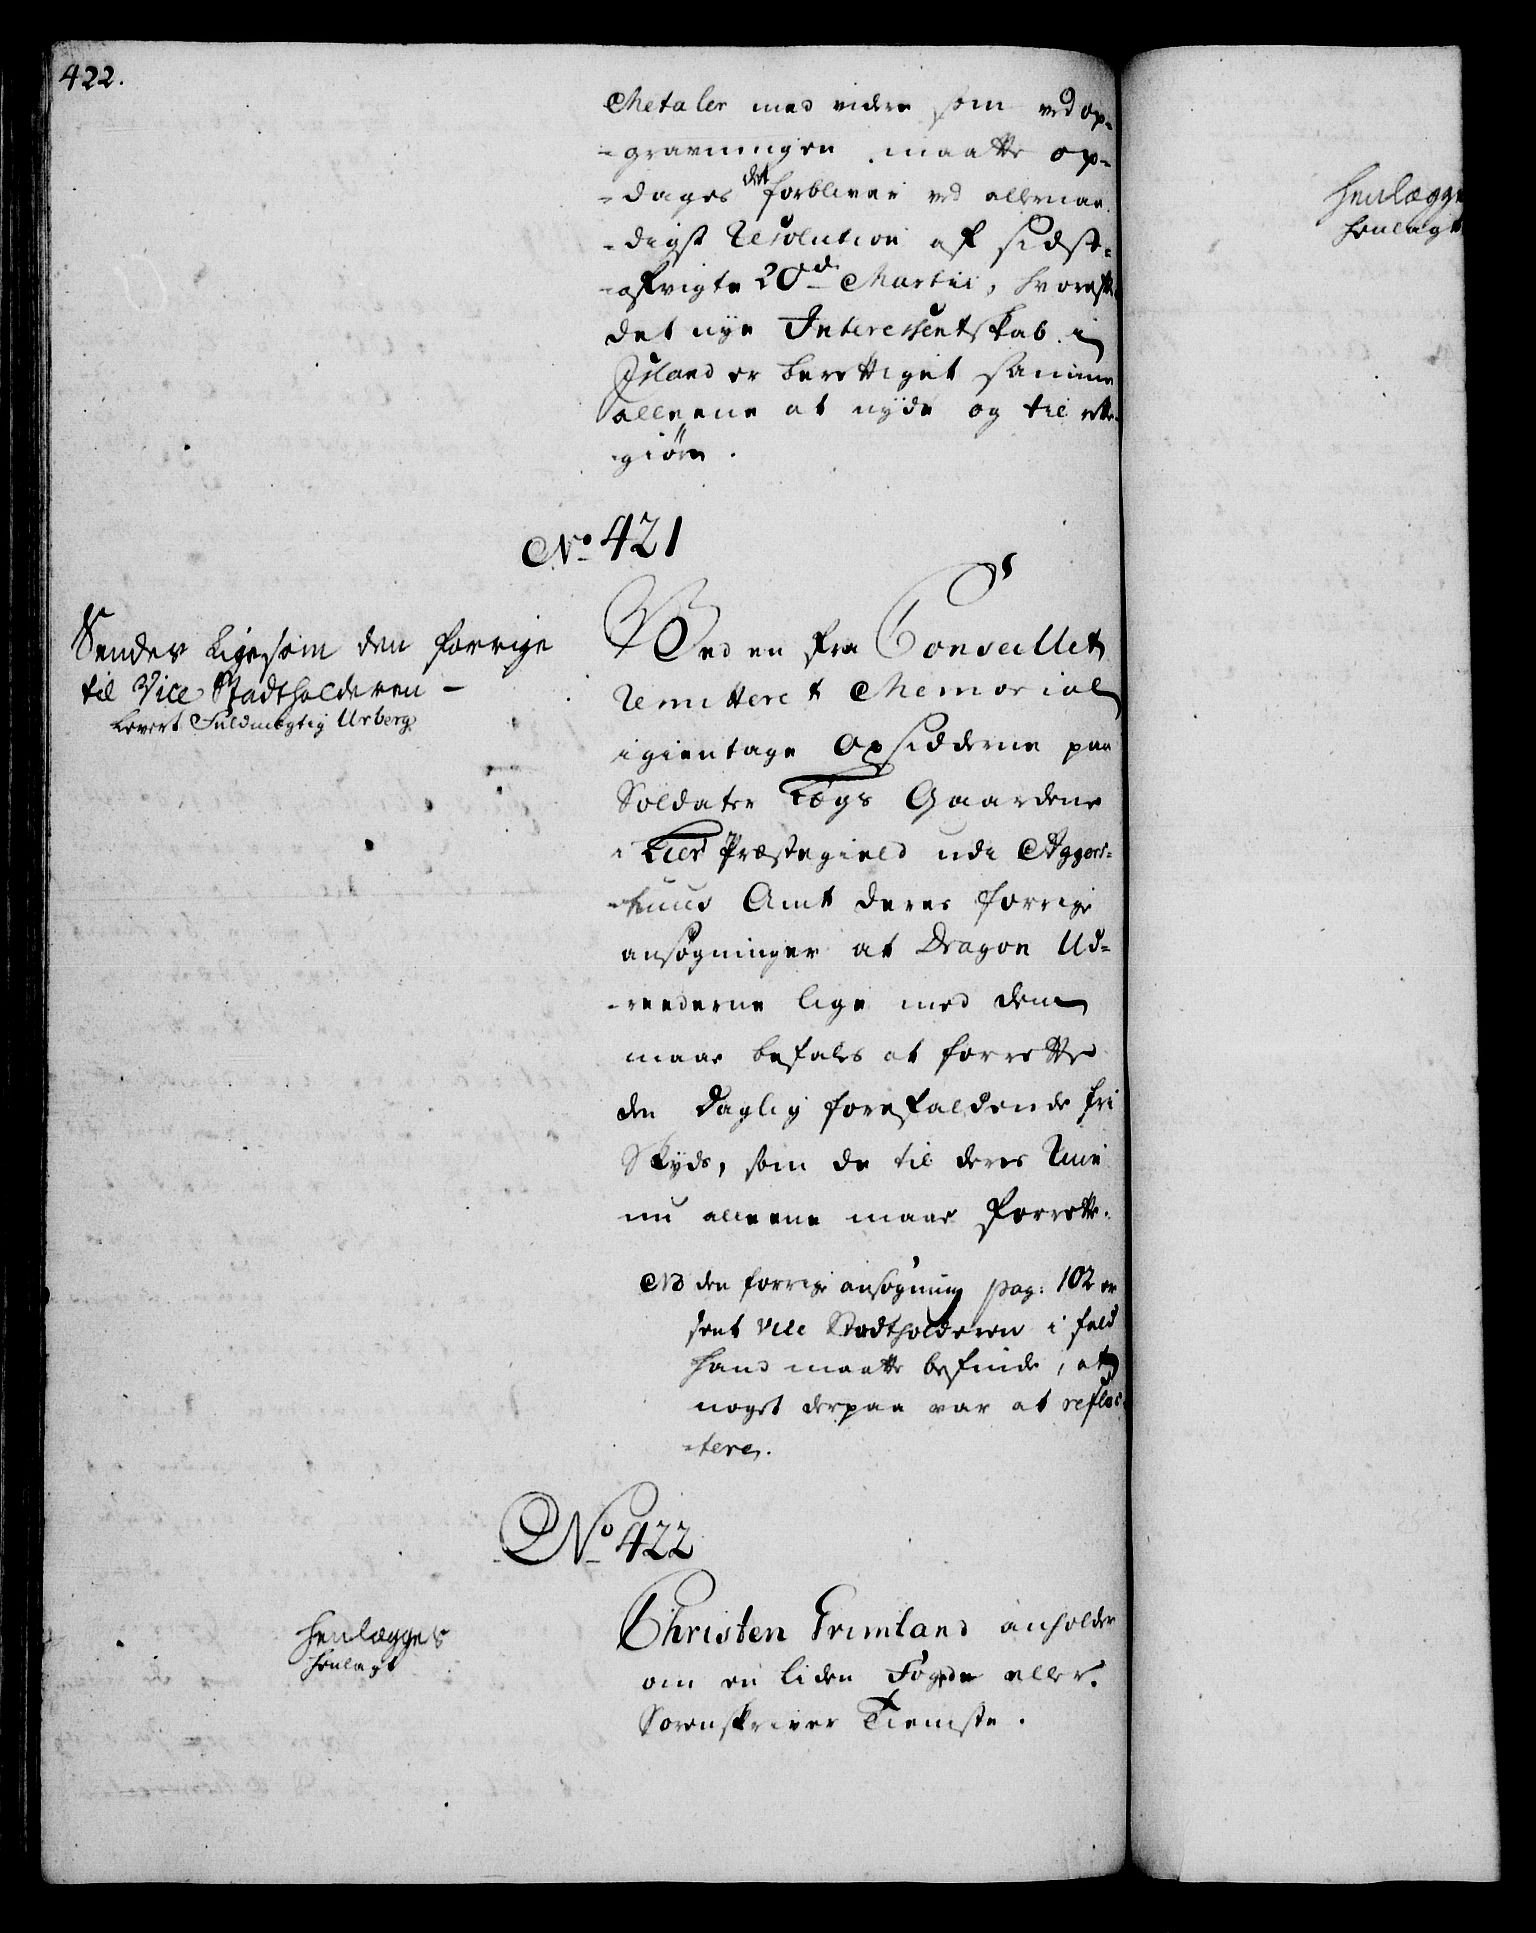 422.
Metaler med videre som ved op-
-gravningen maatte op-
-dages det forbliver ved allernaa-
-digst Resolution af sidst-
-afvigte 20d Martii, hvorefter
det nye Interessentskab i
Island er berettiget samme
alleene at nyde og til rette-
-giöre.
No 421
Sendes ligesom den forrige
til Vice Stadtholderen -
Levert Fuldmegtig Urberg
Ved en fra Conseillet
Remitteret Memorial
igientage Opsidderne paa
Soldater Lægs Gaardene
i Lier Præstegield udi Aggers-
-huus Amt deres forrige
ansøgninger at Dragon Ud-
-reederne lige med dem
maae befales at forrette
den daglig forefaldende fri
Skyds, som de til deres Ruin
nu alleene maae forrette.
NB den forrige ansøgning pag: 102 er
sent Vice Stadtholderen i fald
hand maatte befinde, at
noget derpaa var at reflec-
-tere.
No 422
Henlægges
henlagt
Christen Grimland anholder
om en liden Fogde eller
Sorenskriver Tieniste.
Henlægge
henlagt